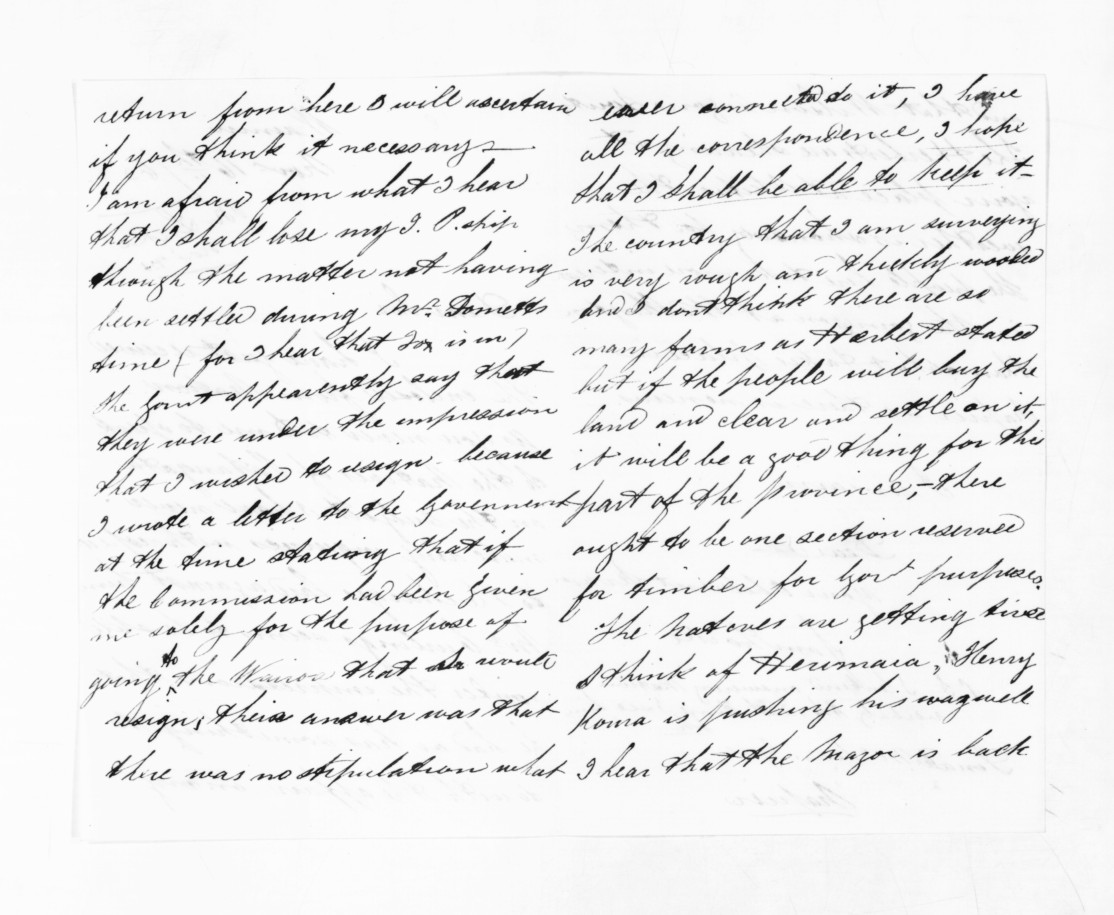 return from here I will ascertain
if you think it necessary –
I am afraid from what I hear
that I shall lose my J. P. ship
through the matter not having
been settled during Mr. Dometts
time (for I hear that Fox is in)
the Govnt apparently say that
they were under the impression
that I wished to resign – because
I wrote a letter to the Government
at the time stating that if
the Commission had been given
me solely for the purpose of
going to the Wairoa that would
resign; their answer was that
there was no stipulation what
ever connected to it, I have
all the correspondence, I hope
that I shall be able to keep it –
The country that I am surveying
is very rough and thickly wooded
and I dont think there are so
many farms as Herbert stated
but if the people will buy the
land and clear and settle on it,
it will be a good thing for this
part of the province, – there
ought to be one section reserved
for timber for Govt purposes.
The natives are getting tired
I think of Herimaia, Henry
is pushing his way well
I hear that the Major is back